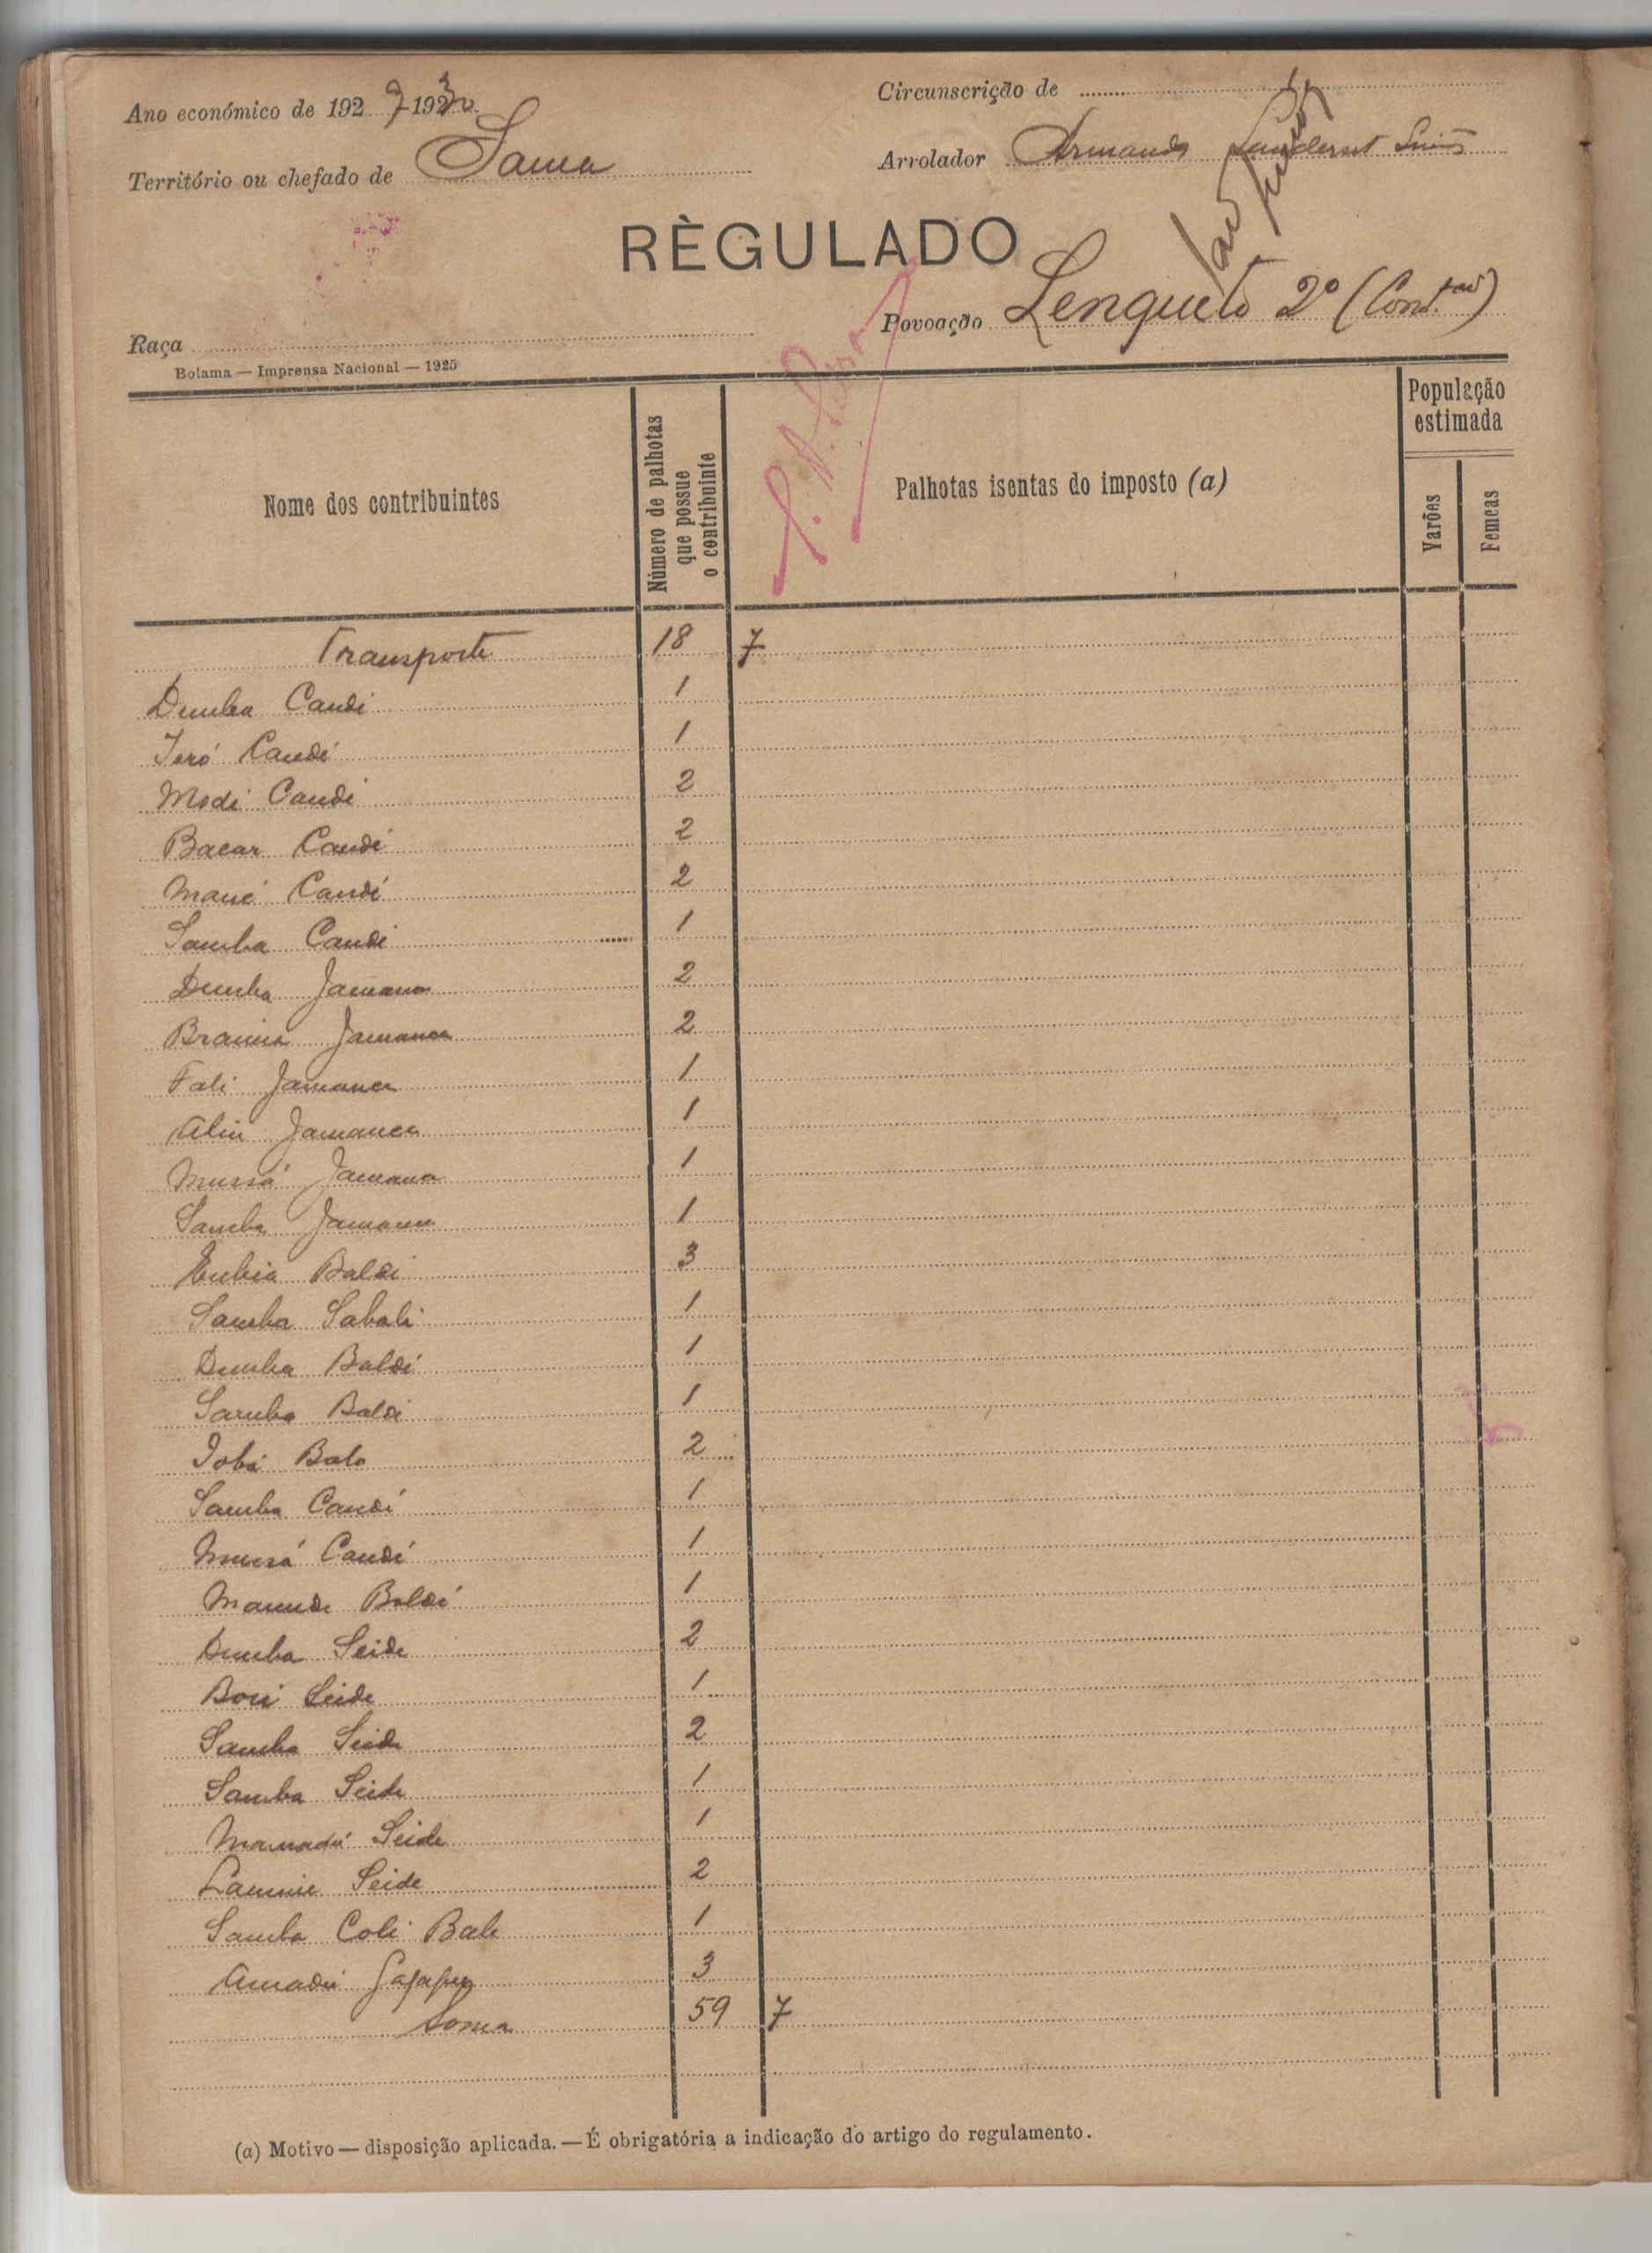 Ano económico de 1929-1930
Circunscrição de
Território ou chefado de Sama
Arrolador Armando
RÈGULADO
Povoação Lenqueto 2º (Cont.)
Raça
Bolama — Imprensa Nacional — 1925
Nome dos contribuintes
Número de palhotas que possue o contribuinte
Palhotas isentas do imposto (a)
População estimada
Varões
Femeas
Transporte 18 7
Demba Candi 1
Jeró Candé 1
Modi Candi 2
Bacar Candé 2
Mané Candé 2
Samba Candi 1
Demba Jamanca 2
Braima Jamanca 2
Fali Jamanca 1
Aliu Jamanca 1
Mussá Jamanca 1
Samba Jamanca 1
Baldi 3
Samba Sabali 1
Demba Baldé 1
Samba Baldi 1
Jobá Balo 2
Samba Candé 1
Mussá Candé 1
Baldé 1
Demba Seide 2
Seide 1
Samba Seide 2
Samba Seide 1
Mamadú Seide 1
Lamine Seide 2
Samba Coli Bale 1
Amadú 3
Soma 59 7
(a) Motivo — disposição aplicada. — É obrigatória a indicação do artigo do regulamento.